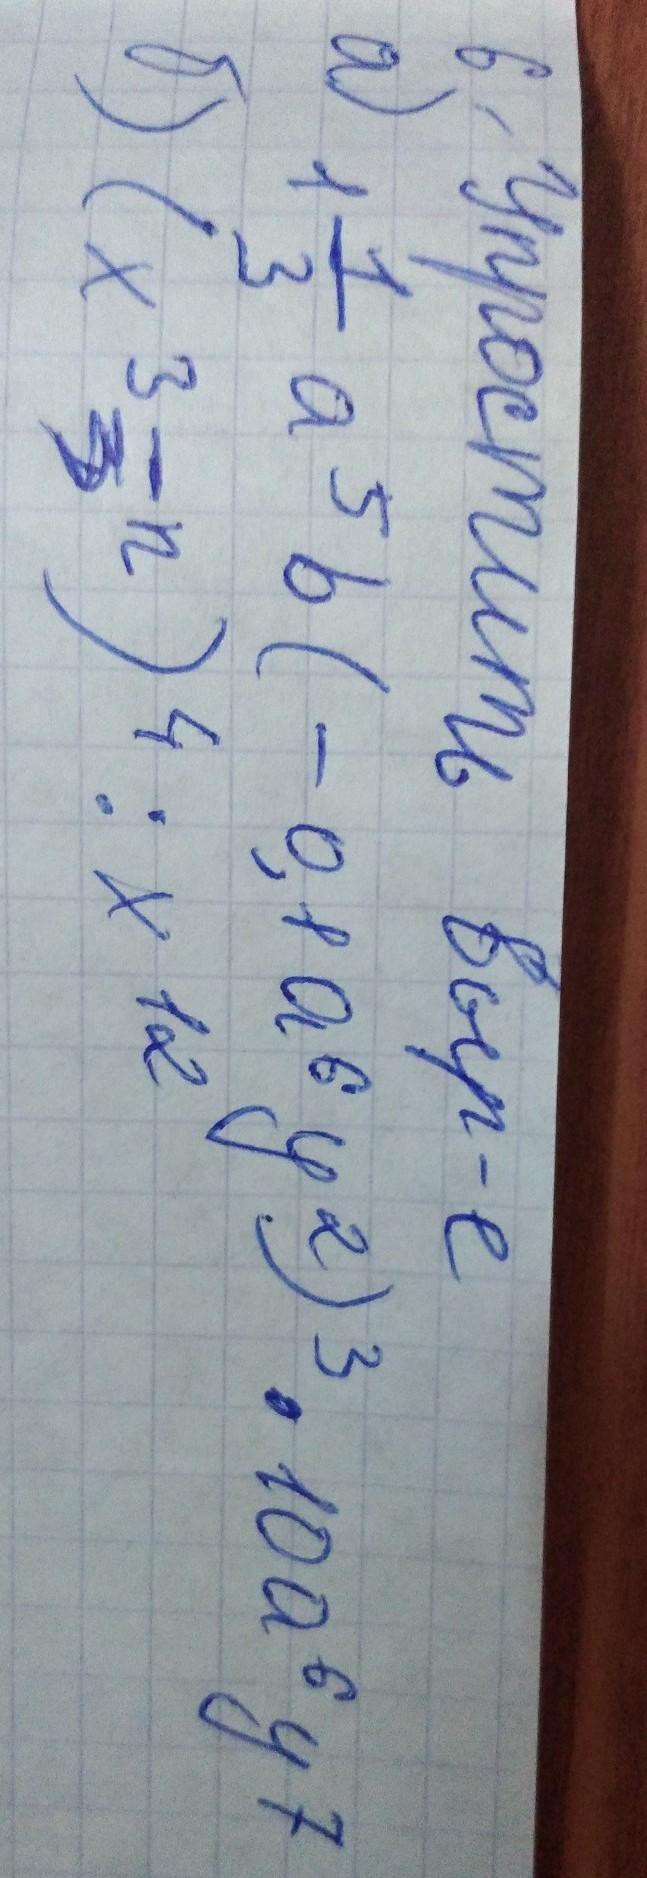 6. Упростить выр-е
а) 1 1/3 a⁵b(-0,1a⁶y²)³ · 10a⁶y⁷
б) (x³⁻ⁿ)⁴ : x¹²